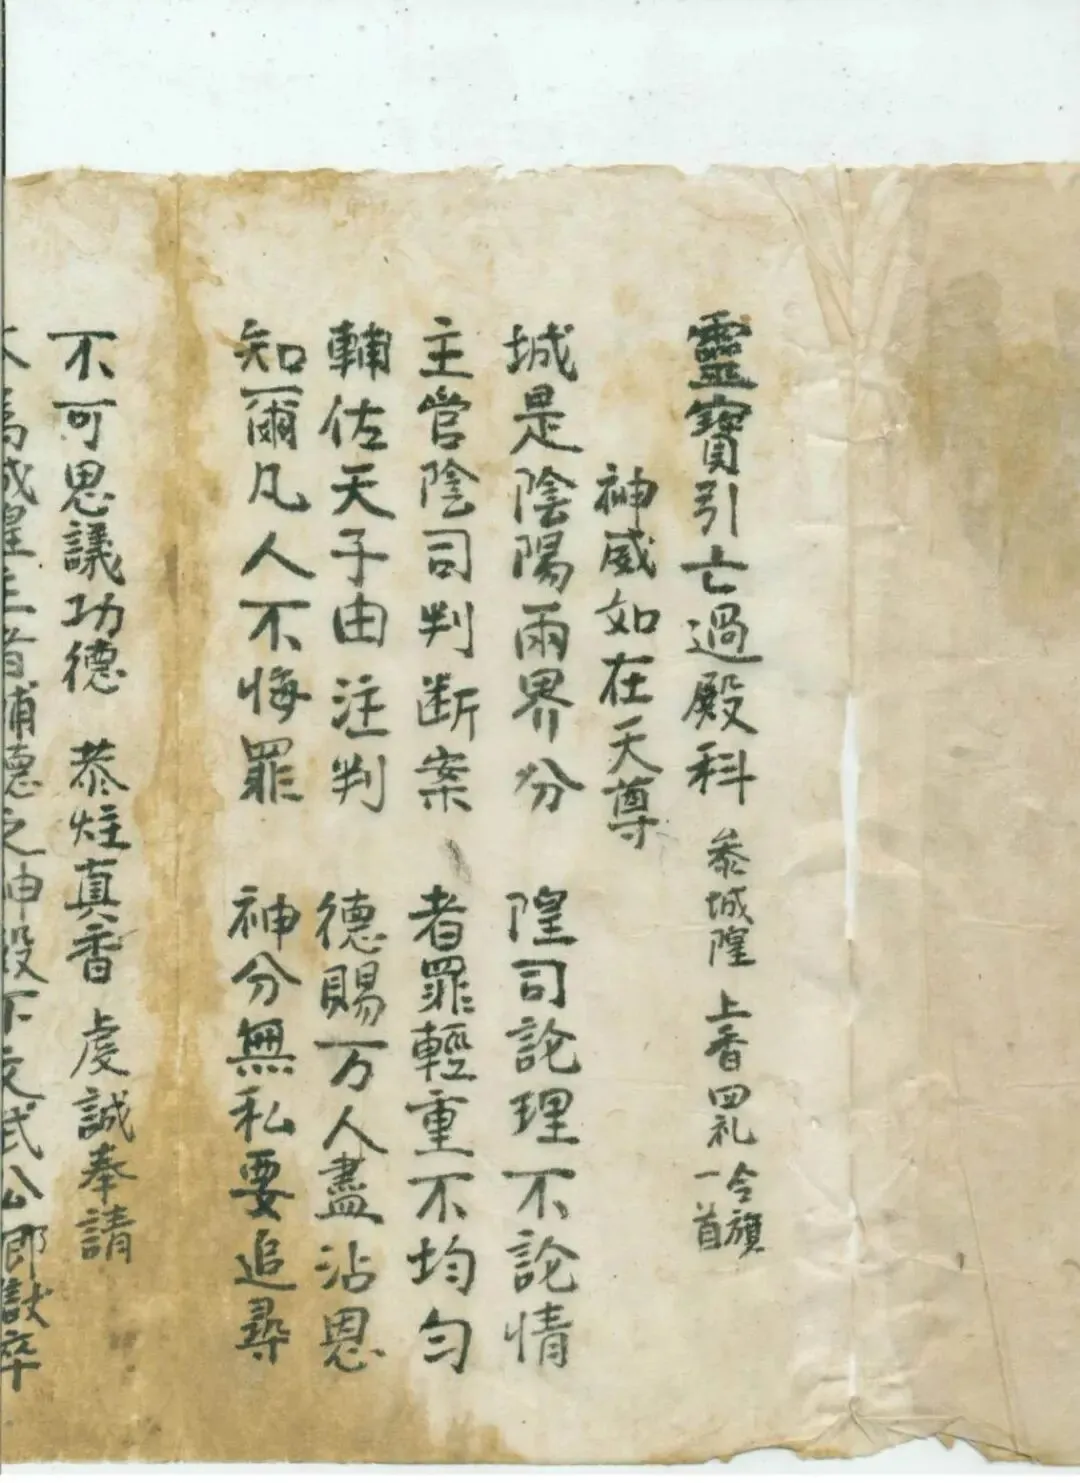 靈寶引亡過殿科 叅城隍 上香四礼 令旗一首
神威如在天尊
城是陰陽兩界分 隍司論理不論情
主管陰司判断案 者罪輕重不均匀
輔佐天子由注判 德賜万人盡沾恩
知爾凡人不悔罪 神分無私要追尋
不可思議功德 恭炷真香 虔誠奉請
城隍主者輔德之神殿下文武公卿獄卒